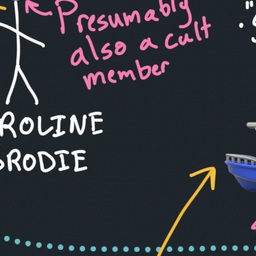 Presumably
also a cult
member
ROLINE
BRODIE